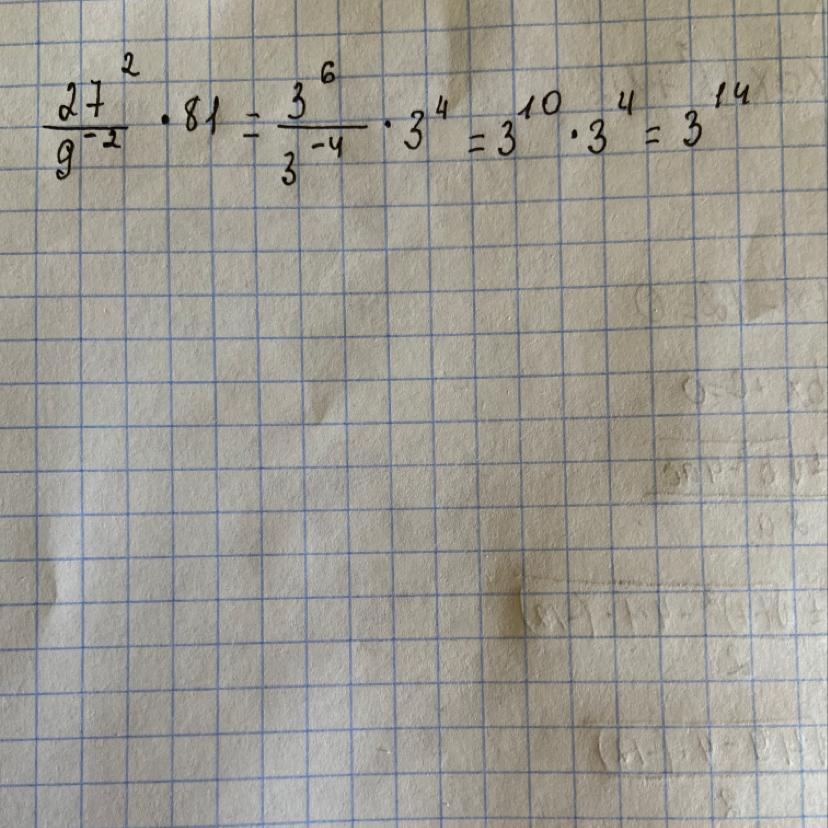 27² / 9⁻² · 81 = 3⁶ / 3⁻⁴ · 3⁴ = 3¹⁰ · 3⁴ = 3¹⁴